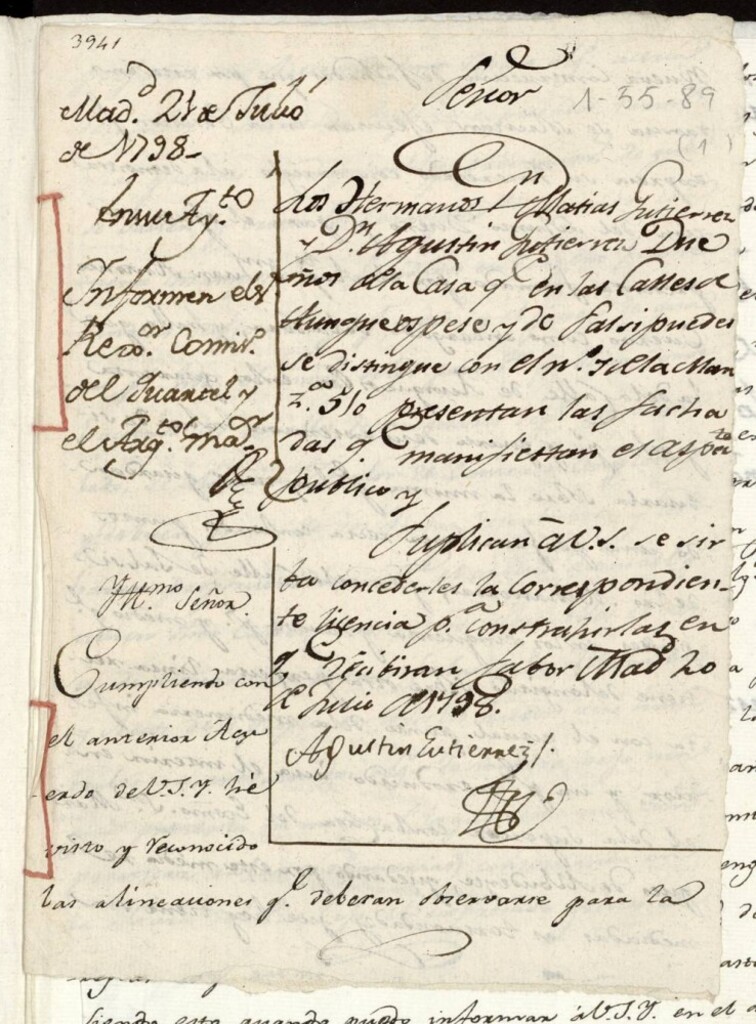 3941
Señor
1-55-89
(1)
Mad.d 21 de Julio
de 1798-
En su Ay.to
Informen el S.r
Rex.or Comis.o
del Quartel y
el Arq.to ma.or
Los Hermanos Dn Matias Gutierrez
y Dn. Agustin Gutierrez Due
ños de la Casa q.e en las Calles de
Aunque os pese y de Salsipuedes
se distingue con el n.o 7 de la Man
z.na 510 presentan las facha
das q.e manifiestan el aspecto
público y
Suplican â V.S. se sir
ba concederles la correspondien-
te licencia p.a construhirlas en
q.e recibiran fabor Mad.d 20
de Julio de 1798.
Agustin Gutierrez
Yll.mo Señor.
Cumpliendo con
el anterior Acu
erdo de V.S.Y. hè
visto y reconocido
las alineaciones q.e deberan observarse para la
siendo esto quanto puedo informar à V.S.Y. en el